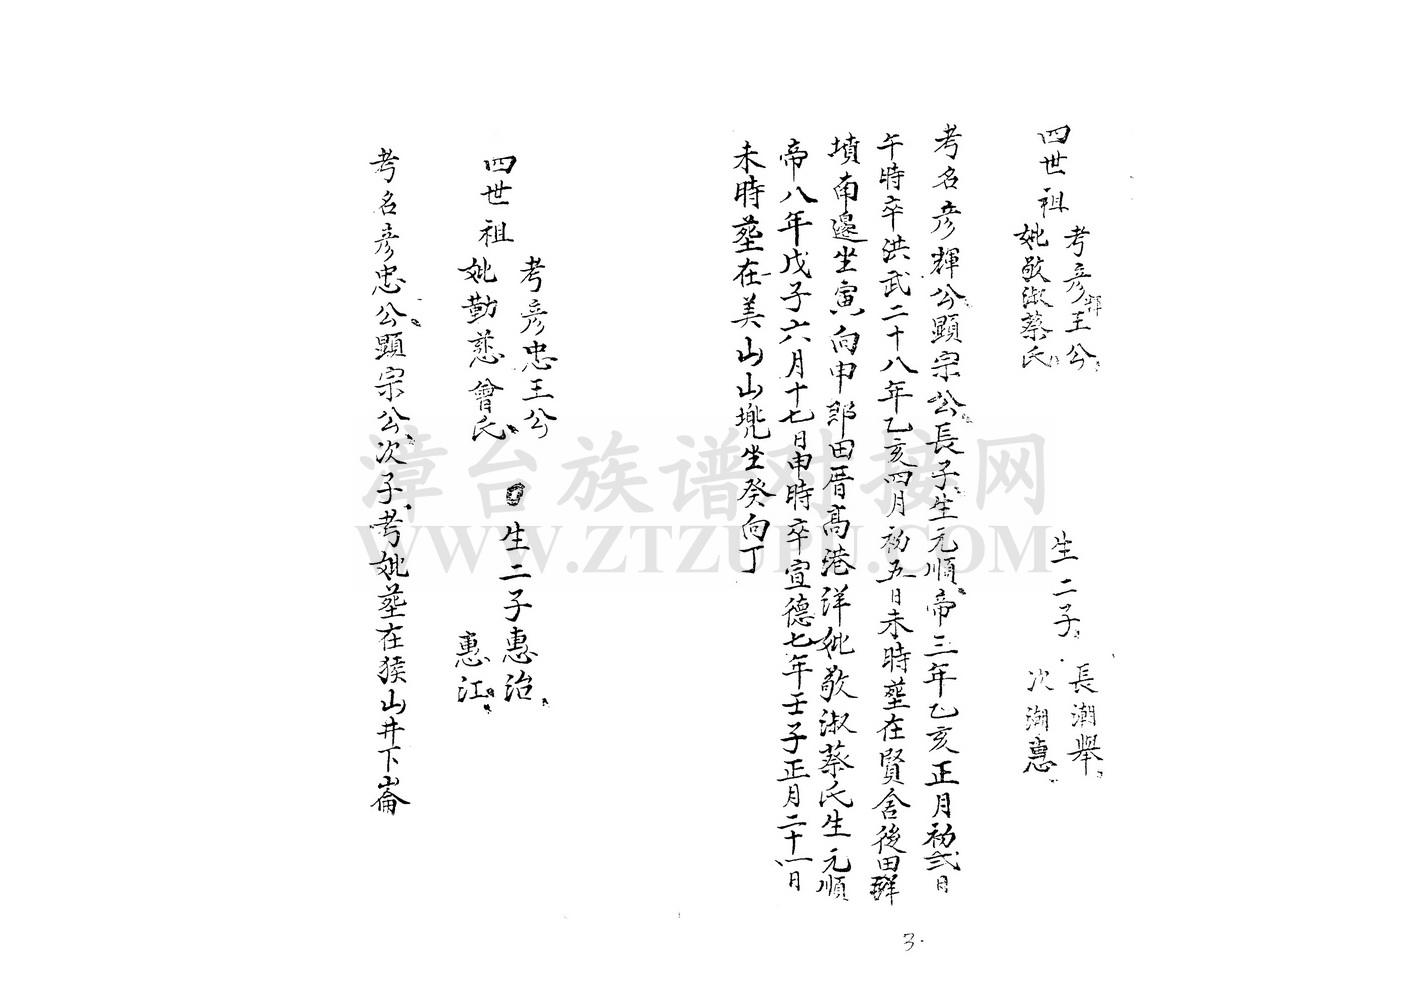 四世祖
考彦輝王公
妣敬淑蔡氏
生二子
長潮舉
次潮惠
考名彦輝公顯宗公長子生元順帝三年乙亥正月初弍日
午時卒洪武二十八年乙亥四月初五日未時塟在賢舍後田
墳南邊坐寅向申郭田厝高港洋妣敬淑蔡氏生元順
帝八年戊子六月十七日申時卒宣德七年壬子正月二十一日
未時塟在美山山垗坐癸向丁
四世祖
考彦忠王公
妣勤慈曾氏
生二子惠治
惠江
考名彦忠公顯宗公次子考妣塟在猴山井下崙
3.
漳台族谱对接网
WWW.ZTZUPU.COM